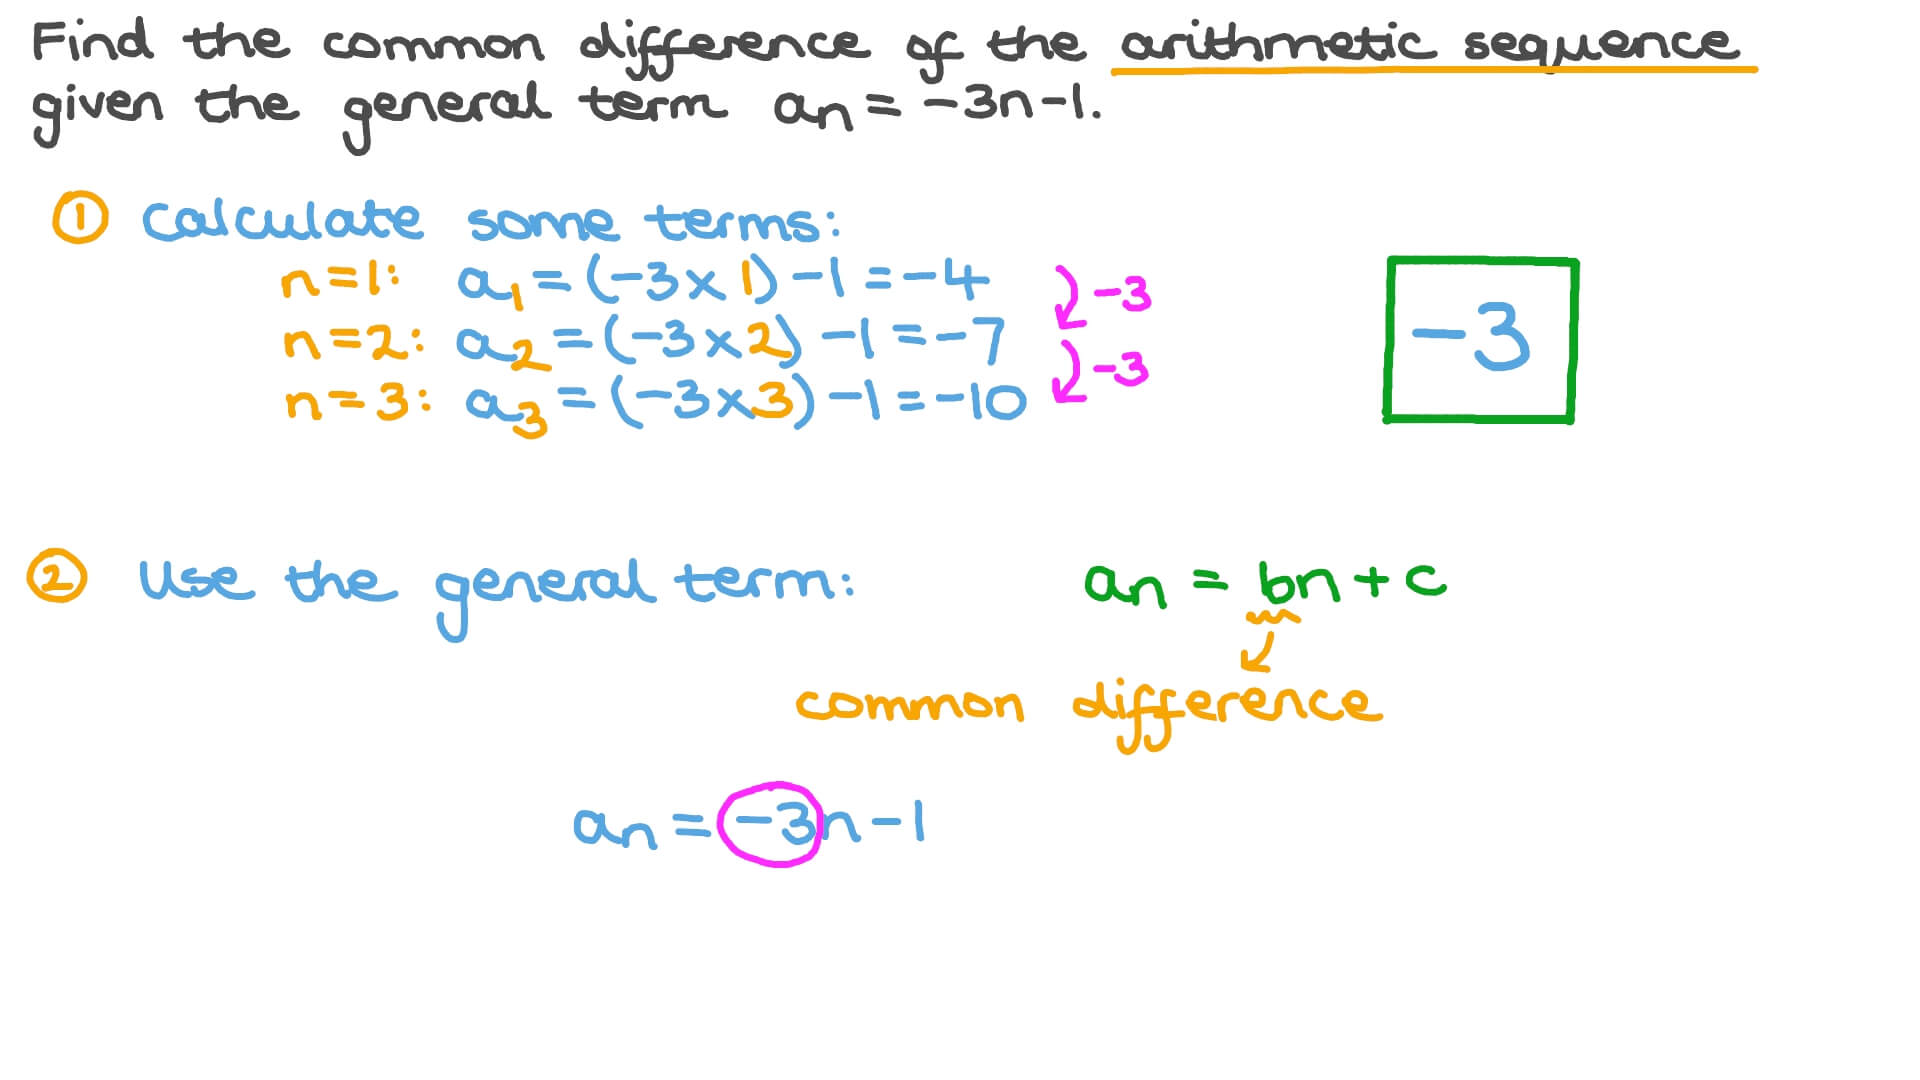 Find the common difference of the arithmetic sequence
given the general term an = -3n-1.
1 calculate some terms:
n=1: a1 = (-3 × 1) -1 = -4 -3
n=2: a2 = (-3 × 2) -1 = -7 -3
n=3: a3 = (-3 × 3) -1 = -10
-3
2 Use the general term: an = bn + c
common difference
an = -3n - 1